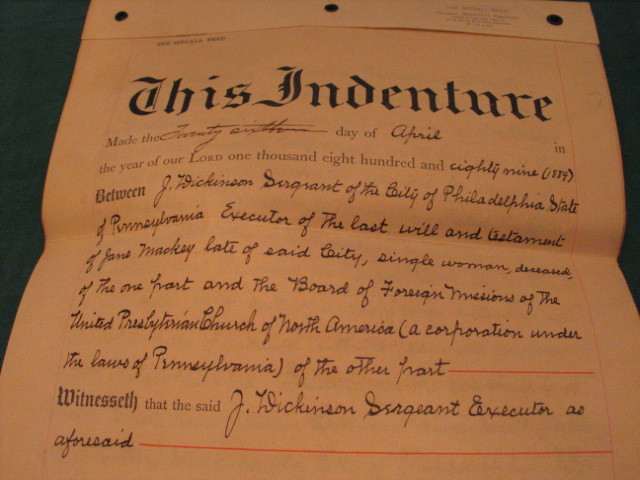 THE MODALL DEED
This Indenture
Made the Twenty sixth day of April in
the year of our LORD one thousand eight hundred and eighty nine (1889)
Between J. Dickinson Sergeant of the City of Philadelphia State
of Pennsylvania Executor of the last will and testament
of Jane Mackey late of said City, single woman, deceased,
of the one part and the Board of Foreign Missions of the
United Presbyterian Church of North America (a corporation under
the laws of Pennsylvania) of the other part
Witnesseth that the said J. Dickinson Sergeant Executor as
aforesaid